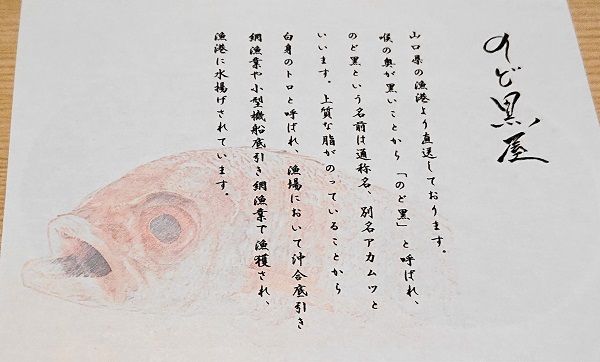 のど黒屋
山口県の漁港より直送しております。
喉の奥が黒いことから「のど黒」と呼ばれ、
のど黒という名前は通称名、別名アカムツと
いいます。上質な脂がのっていることから
白身のトロと呼ばれ、漁場において沖合底引き
網漁業や小型機船底引き網漁業で漁獲され、
漁港に水揚げされています。